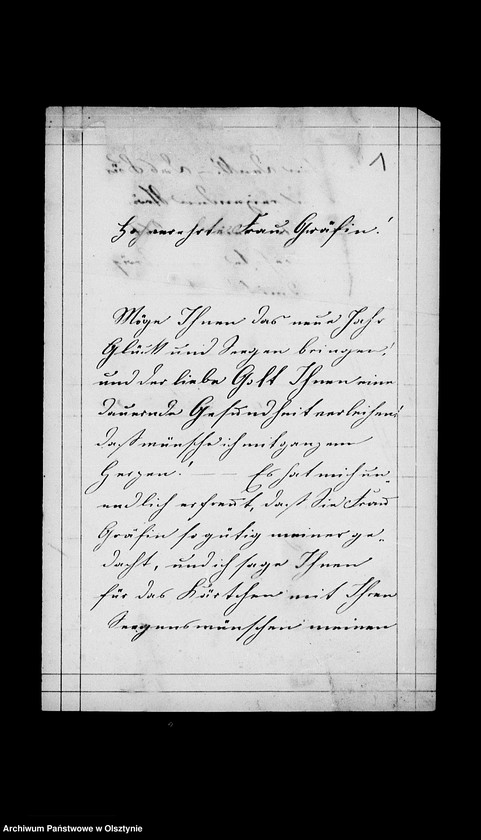 1
Hochverehrte Frau Gräfin!
Möge Ihnen das neue Jahr
Glück und Seegen bringen,
und der liebe Gott Ihnen eine
dauernde Gesundheit verleihen!
daß wünsche ich mit ganzem
Herzen! — Es hat mich un-
endlich erfreut, daß Sie Frau
Gräfin so gütig meiner ge-
dacht, und ich sage Ihnen
für das Kärtchen mit Ihren
Seegenswünschen meinen
Archiwum Państwowe w Olsztynie